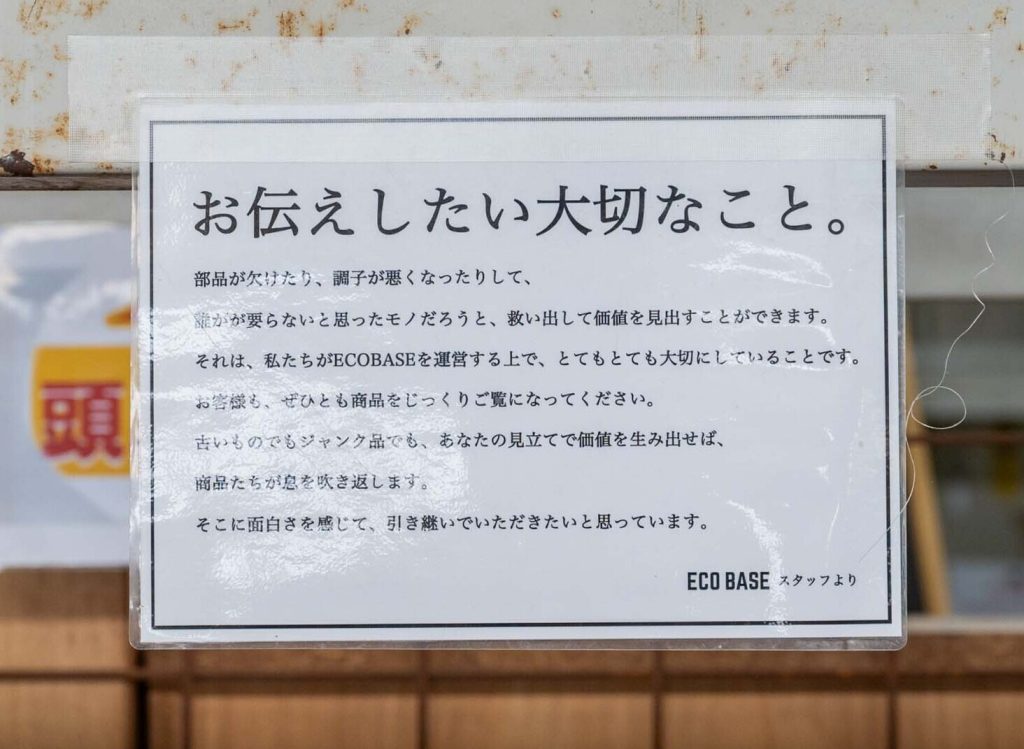 お伝えしたい大切なこと。
部品が欠けたり、調子が悪くなったりして、
誰がが要らないと思ったモノだろうと、救い出して価値を見出すことができます。
それは、私たちがECOBASEを運営する上で、とてもとても大切にしていることです。
お客様も、ぜひとも商品をじっくりご覧になってください。
古いものでもジャンク品でも、あなたの見立てで価値を生み出せば、
商品たちが息を吹き返します。
そこに面白さを感じて、引き継いでいただきたいと思っています。
ECO BASE スタッフより
頭